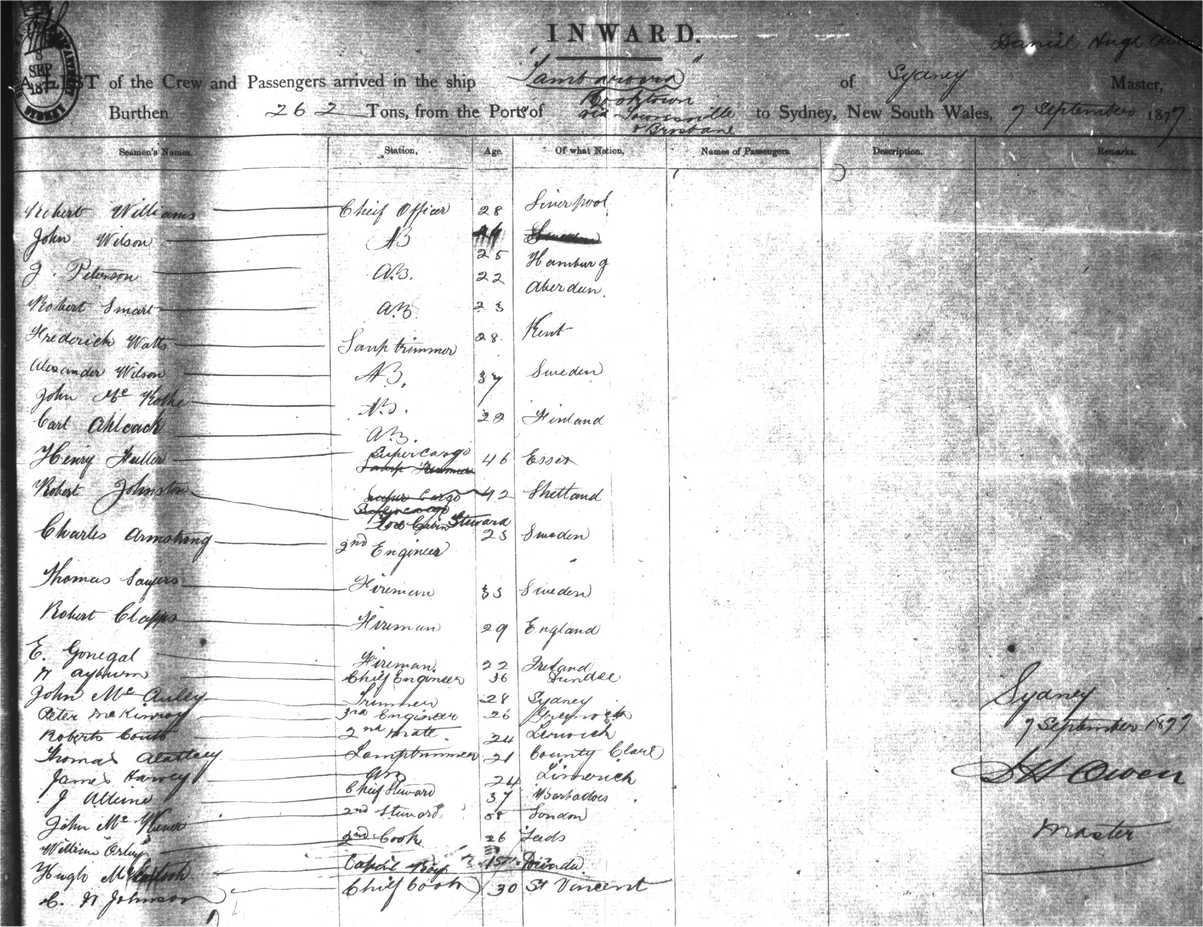 INWARD.
Daniel Hugh
SEP
A LIST of the Crew and Passengers arrived in the ship "Tambaroora" of Sydney Master,
Burthen 262 Tons, from the Port of Cooktown via Townsville & Brisbane to Sydney, New South Wales, 7 September 1877
Seamen's Names. Station. Age. Of what Nation. Names of Passengers Description. Remarks.
Robert Williams Cheif Officer 28 Liverpool
John Wilson AB 25 Hamburg
J. Peterson A.B. 22 Aberdeen
Robert Smart A.B. 23
Frederick Watts Lamp trimmer 28 Kent
Alexander Wilson A.B. 37 Sweden
John Mc A.B.
Carl A.B. 22 Finland
Henry Fuller Supercargo 46 Essex
Robert Johnston Steward 42 Shetland
Charles Armstrong 2nd Engineer 23 Sweden
Thomas Sayers Fireman 33 Sweden
Robert Clapps Fireman 29 England
E. Gonegal Fireman. 22 Ireland
Chief Engineer 36 Dundee
John Mc Auley Trimmer 28 Sydney
Peter McKinroy 3rd Engineer 26 Greenock
Roberts 2nd Mate 24 Lerwick
Thomas Lamptrimmer 21 County Clare
James Harvey 24 Limerick
J Chief Steward 37 Barbadoes
John Mc 2nd Steward 58 London
William 2nd Cook 26 Leeds
Hugh Boy 15 Dundee
C. N Johnson Chief Cook 30 St Vincent
Sydney
7 September 1877
D H Owen
Master